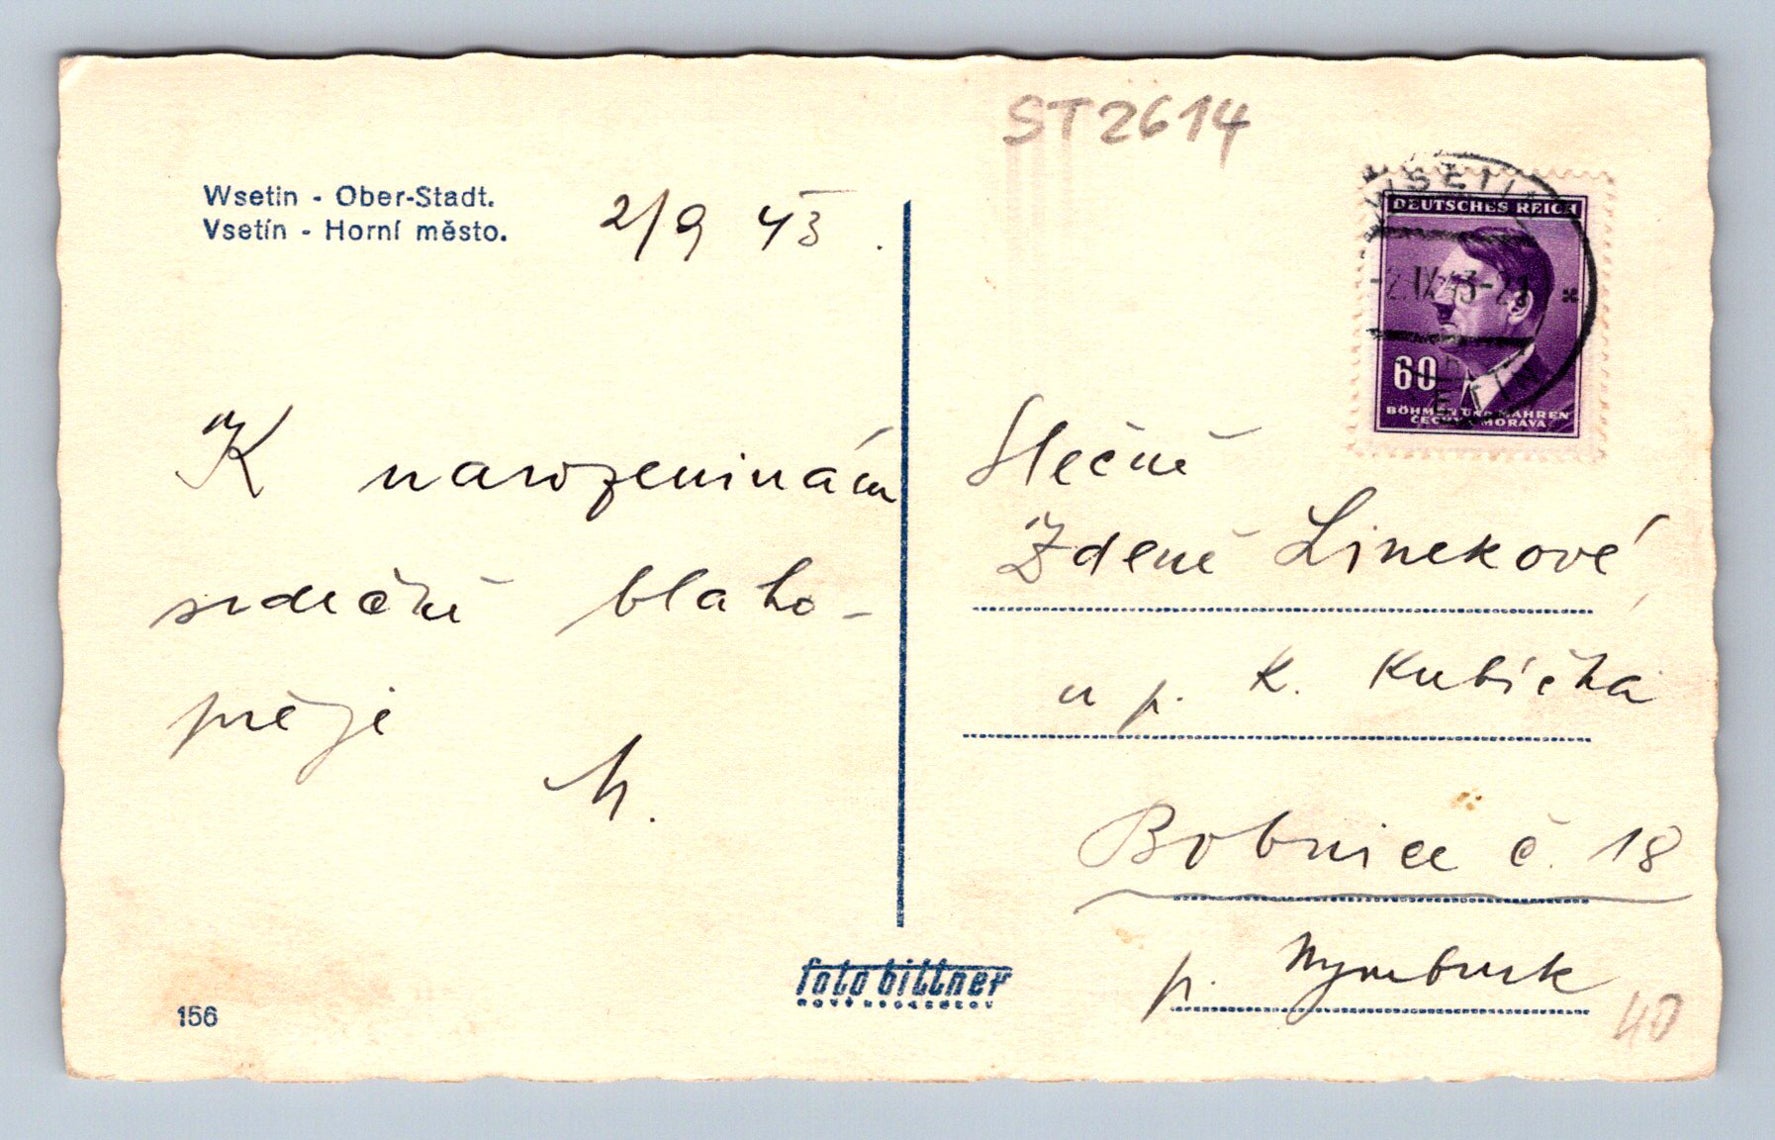 Wsetin - Ober-Stadt.
Vsetín - Horní město.
2/9 43.
ST2614
VSETÍN
DEUTSCHES REICH
-2.IX.43-21
60
BÖHMEN UND MÄHREN
ČECHY A MORAVA
K narozeninám
srdečně blaho-
přeje
Slečně
Zdeně Linekové,
u p. K. Kubíčka
Bobnice č. 18
p. Nymburk
40
foto bittner
156